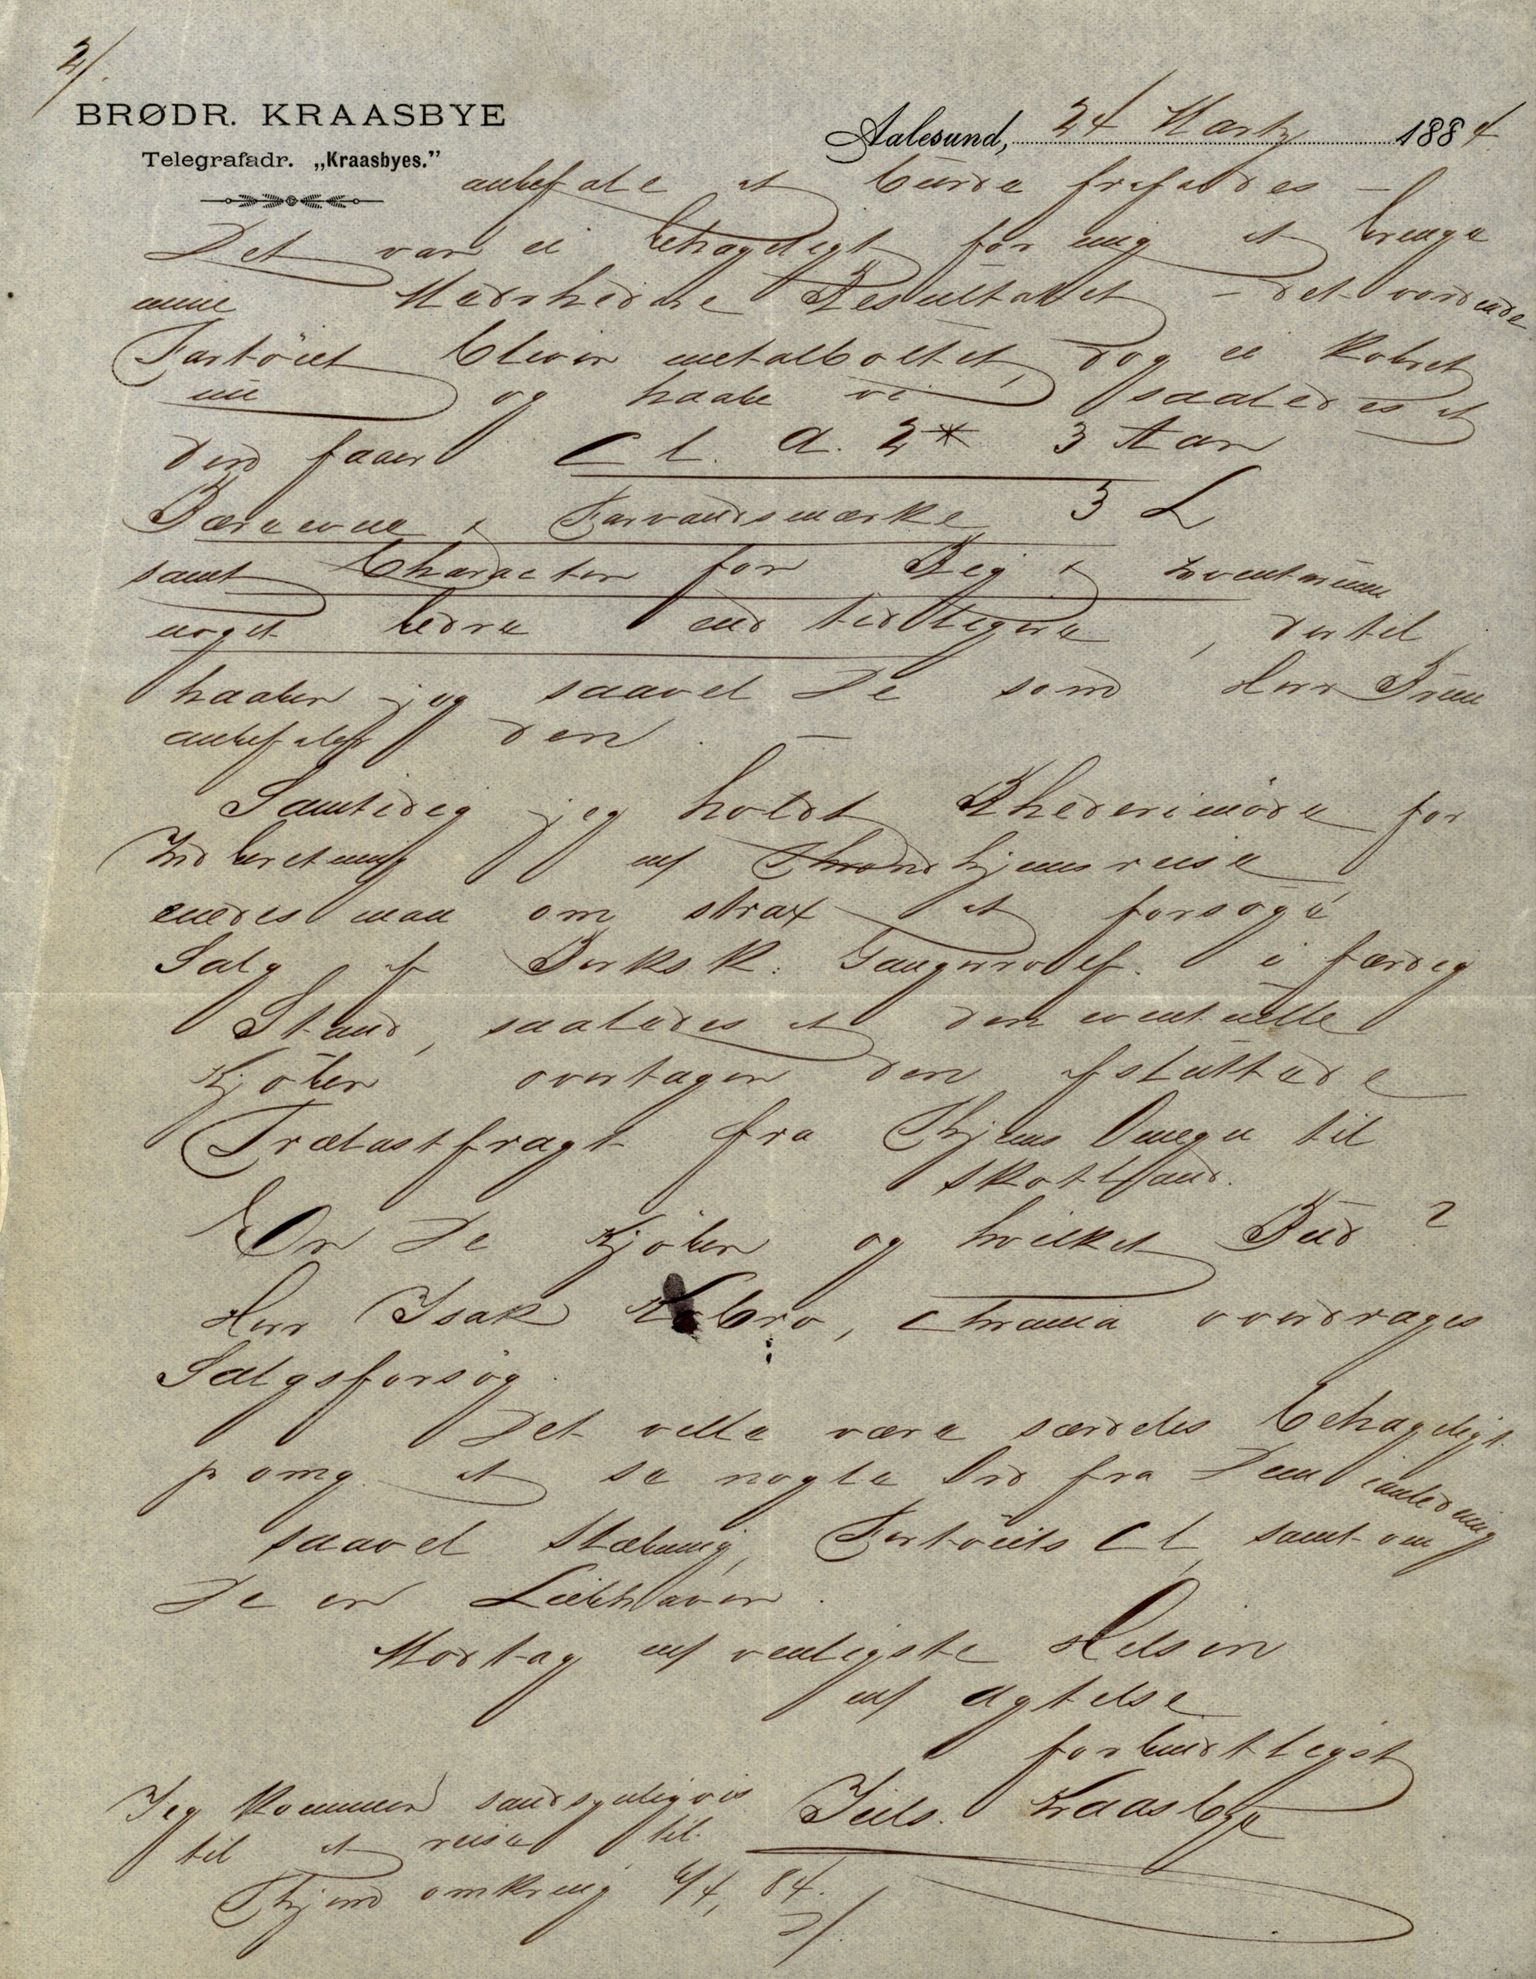 2/.
BRØDR. KRAASBYE
Telegrafadr. „Kraasbyes.”
Aalesund, 24 Martz 1884
anbefale at burde frafaldes –
Det var ei behageligt for mig at bringe
mine Medrhedere Resultatet – det vordende
Fartöiet bliver metalboltet, dog ei kobret
nu og haabe vi saaledes at
den faaer Cl. A. 2* 3 Aar
Bæreevne & Farvandsmærke 3 L
samt Character for Rig & Inventarium
noget bedre end tidligere, dertil
haaber jeg saavel De som Herr Bruun
anbefaler den. –
Samtidig jeg holdt Rhederimöde for
Indberetning af Throndhjemsreise
enedes man om strax at forsøge
Salg af Barksk. Ganger Rolf. i færdig
Stand, saaledes at den eventuelle
Kjöber overtager den afsluttede
Trælastfragt fra Thjems Omegn til
Skotland.
Er De Kjöber og hvilket Bud?
Herr Isak Kobro, Chrania overdrages
Salgsforsøg.
Det ville være særdeles behageligt
p omg. at se nogle Ord fra Dem i anledning
saavel Stævning, Fartöiets Cl, samt om
De er Liebhaver.
Modtag af venligste Hilsen
af Agtelse
forbindtligst
Jeg kommer sandsynligvis
til at reise til
Thjem omkring 6/4, 84.
Niels. Kraasbye
2/